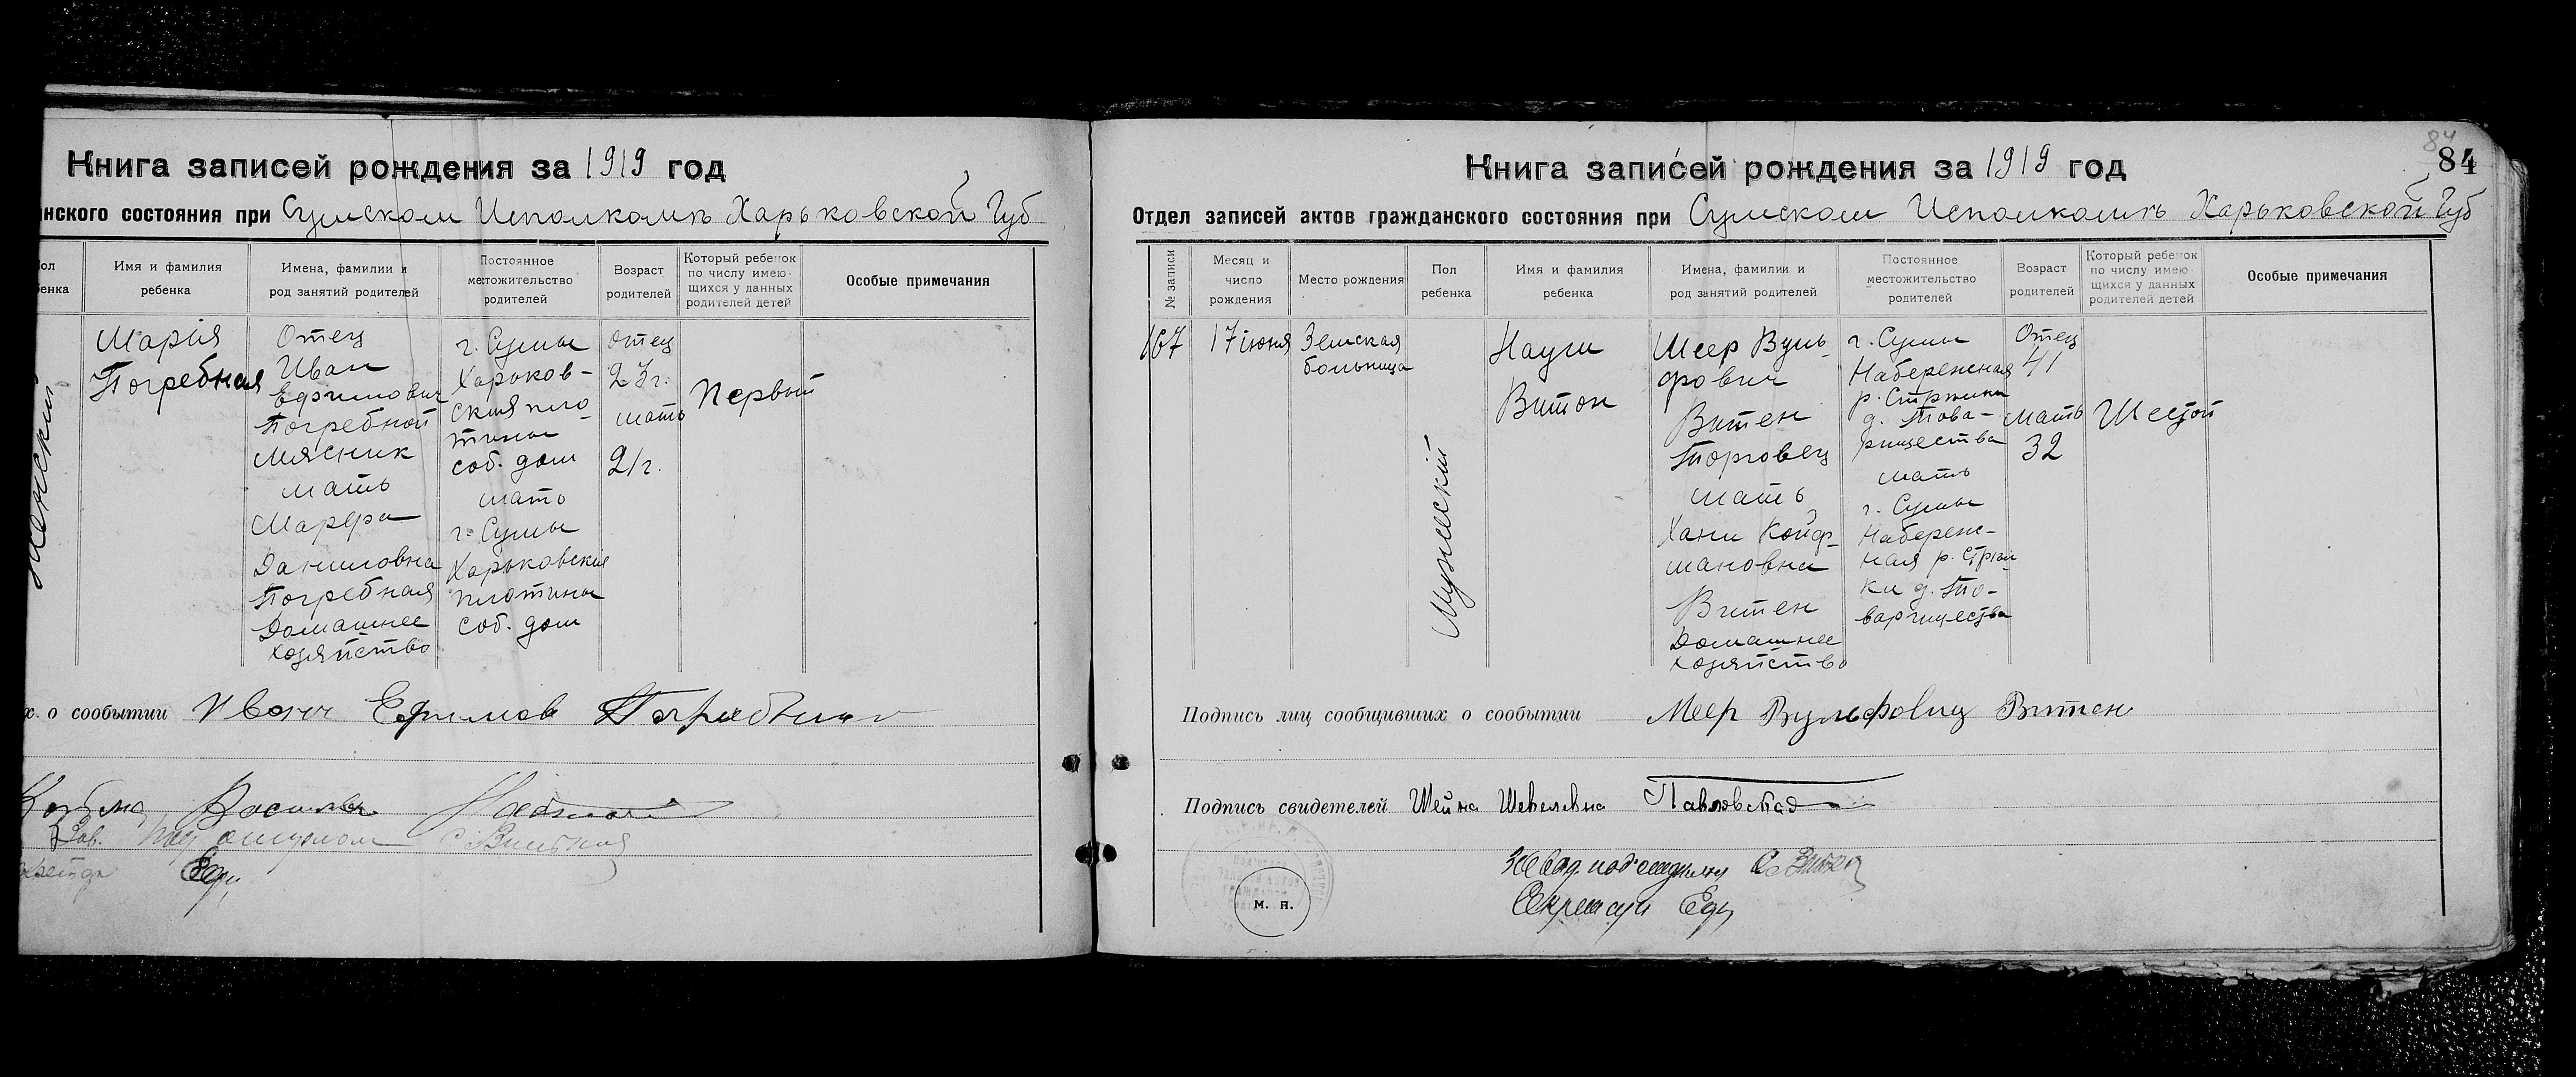 Книга записей рождения за 1919 год
нского состояния при Сумском Исполкомѣ Харьковской Губ
ол
енка
Имя и фамилия
ребенка
Имена, фамилии и
род занятий родителей
Постоянное
местожительство
родителей
Возраст
родителей
Который ребенок
по числу имею-
щихся у данных
родителей детей
Особые примечания
Женский
Марія
Погребная
Отец
Иван
Ефимович
Погребной
Мясник
мать
Марфа
Даниловна
Погребная
Домашнее
хозяйство
г. Сумы
Харьков-
ская пло-
тина
соб. дом
мать
г. Сумы
Харьковская
плотина
соб. дом
отец
23 г.
мать
21 г.
Первый
х о событии Иван Ефимов
Зав. под отделом
84
84
Книга записей рождения за 1919 год
Отдел записей актов гражданского состояния при Сумском Исполкомѣ Харьковской Губ
№ записи
Месяц и
число
рождения
Место рождения
Пол
ребенка
Имя и фамилия
ребенка
Имена, фамилии и
род занятий родителей
Постоянное
местожительство
родителей
Возраст
родителей
Который ребенок
по числу имею-
щихся у данных
родителей детей
Особые примечания
167
17 іюня
Земская
больница
Мужской
Наум
Витен
Меер Вуль-
фович
Витен
Торговец
мать
Хана Койф-
мановна
Витен
Домашнее
хозяйство
г. Сумы
Набережная
р. Стрелки
д. Това-
рищества
мать
г. Сумы
Набереж-
ная р. Стрел-
ки д. То-
варищества
Отец
41
мать
32
Шестой
Подпись лиц сообщивших о событии Меер Вульфовиц Витен
Подпись свидетелей Шейна Шевелевна Павловская
Завед. под'отделом
Секретарь
М. П.